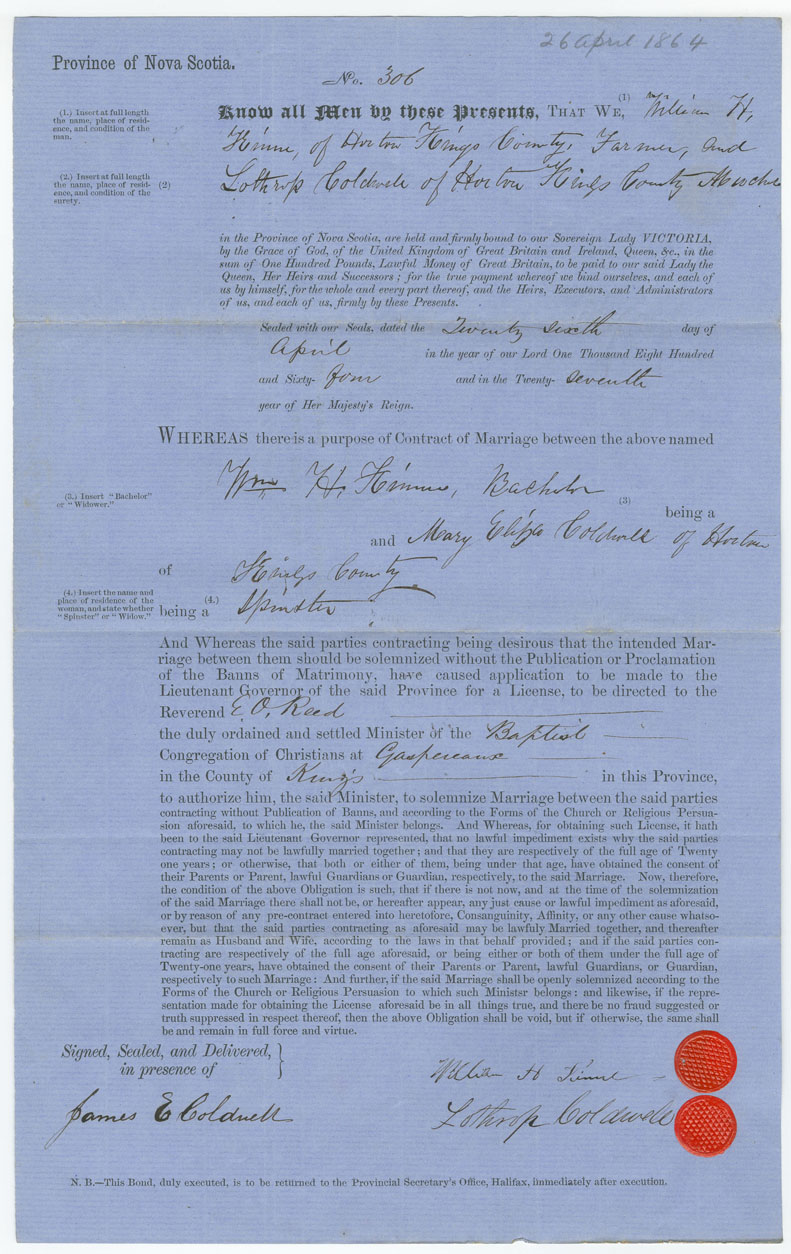 26 April 1864
Province of Nova Scotia.
No. 306
(1.) Insert at full length
the name, place of resid-
ence, and condition of the
man.
Know all Men by these Presents, THAT WE, (1) William H.
Kinnie, of Horton Kings County, Farmer, and
(2.) Insert at full length
the name, place of resid-
ence, and condition of the
surety.
(2) Lothrop Coldwell of Horton Kings County
in the Province of Nova Scotia, are held and firmly bound to our Sovereign Lady VICTORIA,
by the Grace of God, of the United Kingdom of Great Britain and Ireland, Queen, &c., in the
sum of One Hundred Pounds, Lawful Money of Great Britain, to be paid to our said Lady the
Queen, Her Heirs and Successors; for the true payment whereof we bind ourselves, and each of
us by himself, for the whole and every part thereof, and the Heirs, Executors, and Administrators
of us, and each of us, firmly by these Presents.
Sealed with our Seals, dated the Twenty sixth day of
April in the year of our Lord One Thousand Eight Hundred
and Sixty- four and in the Twenty- seventh
year of Her Majesty's Reign.
WHEREAS there is a purpose of Contract of Marriage between the above named
Wm H. Kinnie, Bachelor
(3.) Insert "Bachelor"
or "Widower."
(3)
being a
and Mary Eliza Coldwell of Horton
of Kings County
(4.) Insert the name and
place of residence of the
woman, and state whether
"Spinster" or "Widow."
(4.)
being a Spinster
And Whereas the said parties contracting being desirous that the intended Mar-
riage between them should be solemnized without the Publication or Proclamation
of the Banns of Matrimony, have caused application to be made to the
Lieutenant Governor of the said Province for a License, to be directed to the
Reverend E. O. Reed
the duly ordained and settled Minister of the Baptist
Congregation of Christians at Gaspereaux
in the County of King's in this Province,
to authorize him, the said Minister, to solemnize Marriage between the said parties
contracting without Publication of Banns, and according to the Forms of the Church or Religious Persua-
sion aforesaid, to which he, the said Minister belongs. And Whereas, for obtaining such License, it hath
been to the said Lieutenant Governor represented, that no lawful impediment exists why the said parties
contracting may not be lawfully married together; and that they are respectively of the full age of Twenty
one years; or otherwise, that both or either of them, being under that age, have obtained the consent of
their Parents or Parent, lawful Guardians or Guardian, respectively, to the said Marriage. Now, therefore,
the condition of the above Obligation is such, that if there is not now, and at the time of the solemnization
of the said Marriage there shall not be, or hereafter appear, any just cause or lawful impediment as aforesaid,
or by reason of any pre-contract entered into heretofore, Consanguinity, Affinity, or any other cause whatso-
ever, but that the said parties contracting as aforesaid may be lawfuly Married together, and thereafter
remain as Husband and Wife, according to the laws in that behalf provided; and if the said parties con-
tracting are respectively of the full age aforesaid, or being either or both of them under the full age of
Twenty-one years, have obtained the consent of their Parents or Parent, lawful Guardians, or Guardian,
respectively to such Marriage: And further, if the said Marriage shall be openly solemnized according to the
Forms of the Church or Religious Persuasion to which such Minister belongs: and likewise, if the repre-
sentation made for obtaining the License aforesaid be in all things true, and there be no fraud suggested or
truth suppressed in respect thereof, then the above Obligation shall be void, but if otherwise, the same shall
be and remain in full force and virtue.
Signed, Sealed, and Delivered,
in presence of
William H Kinnie
James E Coldwell
Lothrop Coldwell
N. B.—This Bond, duly executed, is to be returned to the Provincial Secretary's Office, Halifax, immediately after execution.